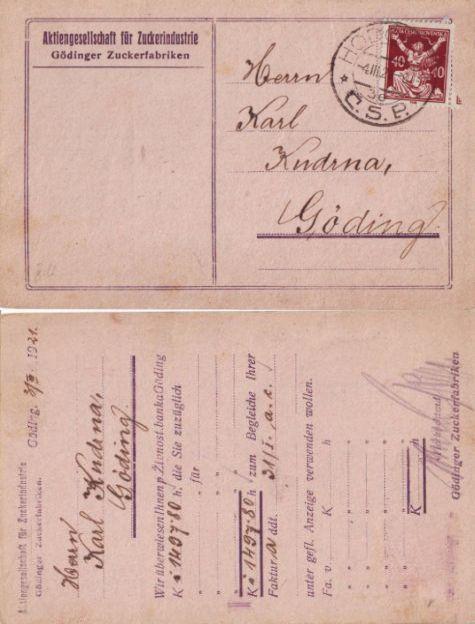 Aktiengesellschaft für Zuckerindustrie
Gödinger Zuckerfabriken
40 40
Č. S. P.
Herrn
Karl
Kudrna,
Göding.
Aktiengesellschaft für Zuckerindustrie
Gödinger Zuckerfabriken.
Göding, 1921.
Herrn
Karl Kudrna,
Göding.
Wir überwiesen Ihnen p. Živnost. banka Göding
K à 1497·80 h, die Sie zuzüglich
" " für
" "
K à 1497·80 h zum Begleiche Ihrer
Faktura ddt. 31/I. a. c.
unter gefl. Anzeige verwenden wollen.
Fa. v. K h
" " "
" " "
" " "
K h
Gödinger Zuckerfabriken